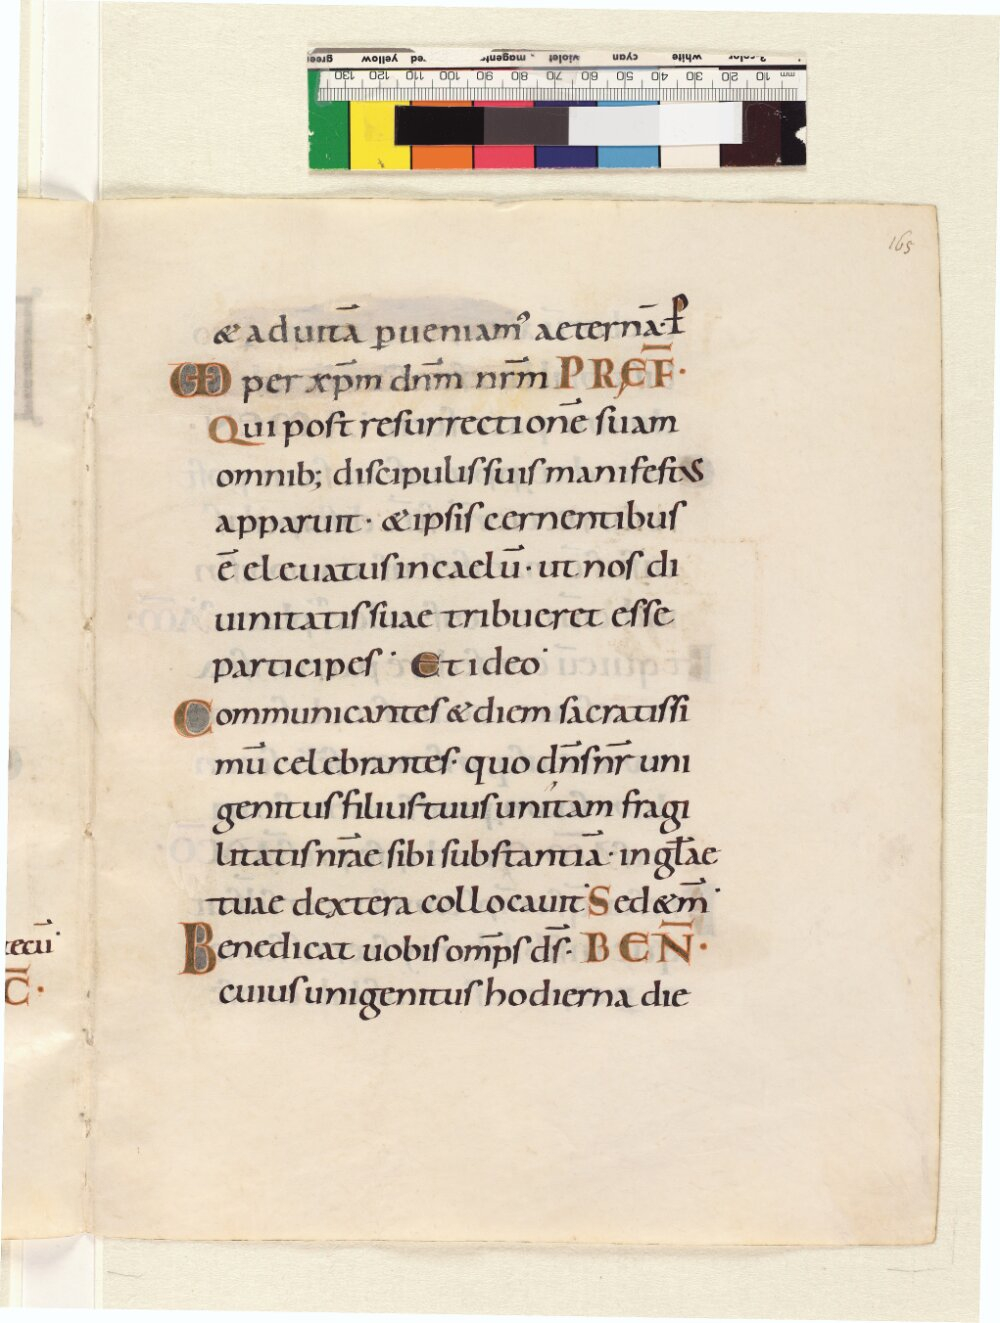 165
& ad uitā pueniam᾽ aeternā· ꝑ
UD per xp̄m dn̄m nr̄m PREF̄·
Qui post resurrectionē suam
omnib; discipulis suis manifestus
apparuit· & ipsis cernentibus
ē eleuatus in caelū· ut nos di
uinitatis suae tribueret esse
participes· Et ideo·
Communicantes & diem sacratissi
mū celebrantes· quo dn̄s nr̄ uni
genitus filius tuus unitam fragi
litatis nr̄ae sibi substantiā· in gl̄ae
tuae dextera collocauit· Sed & m̄·
Benedicat uobis omp̄s ds̄· BEN̄·
cuius unigenitus hodierna die
tecū·
C̄·
mm 10 20 30 40 50 60 70 80 90 100 110 120 130
white cyan violet magenta red yellow green